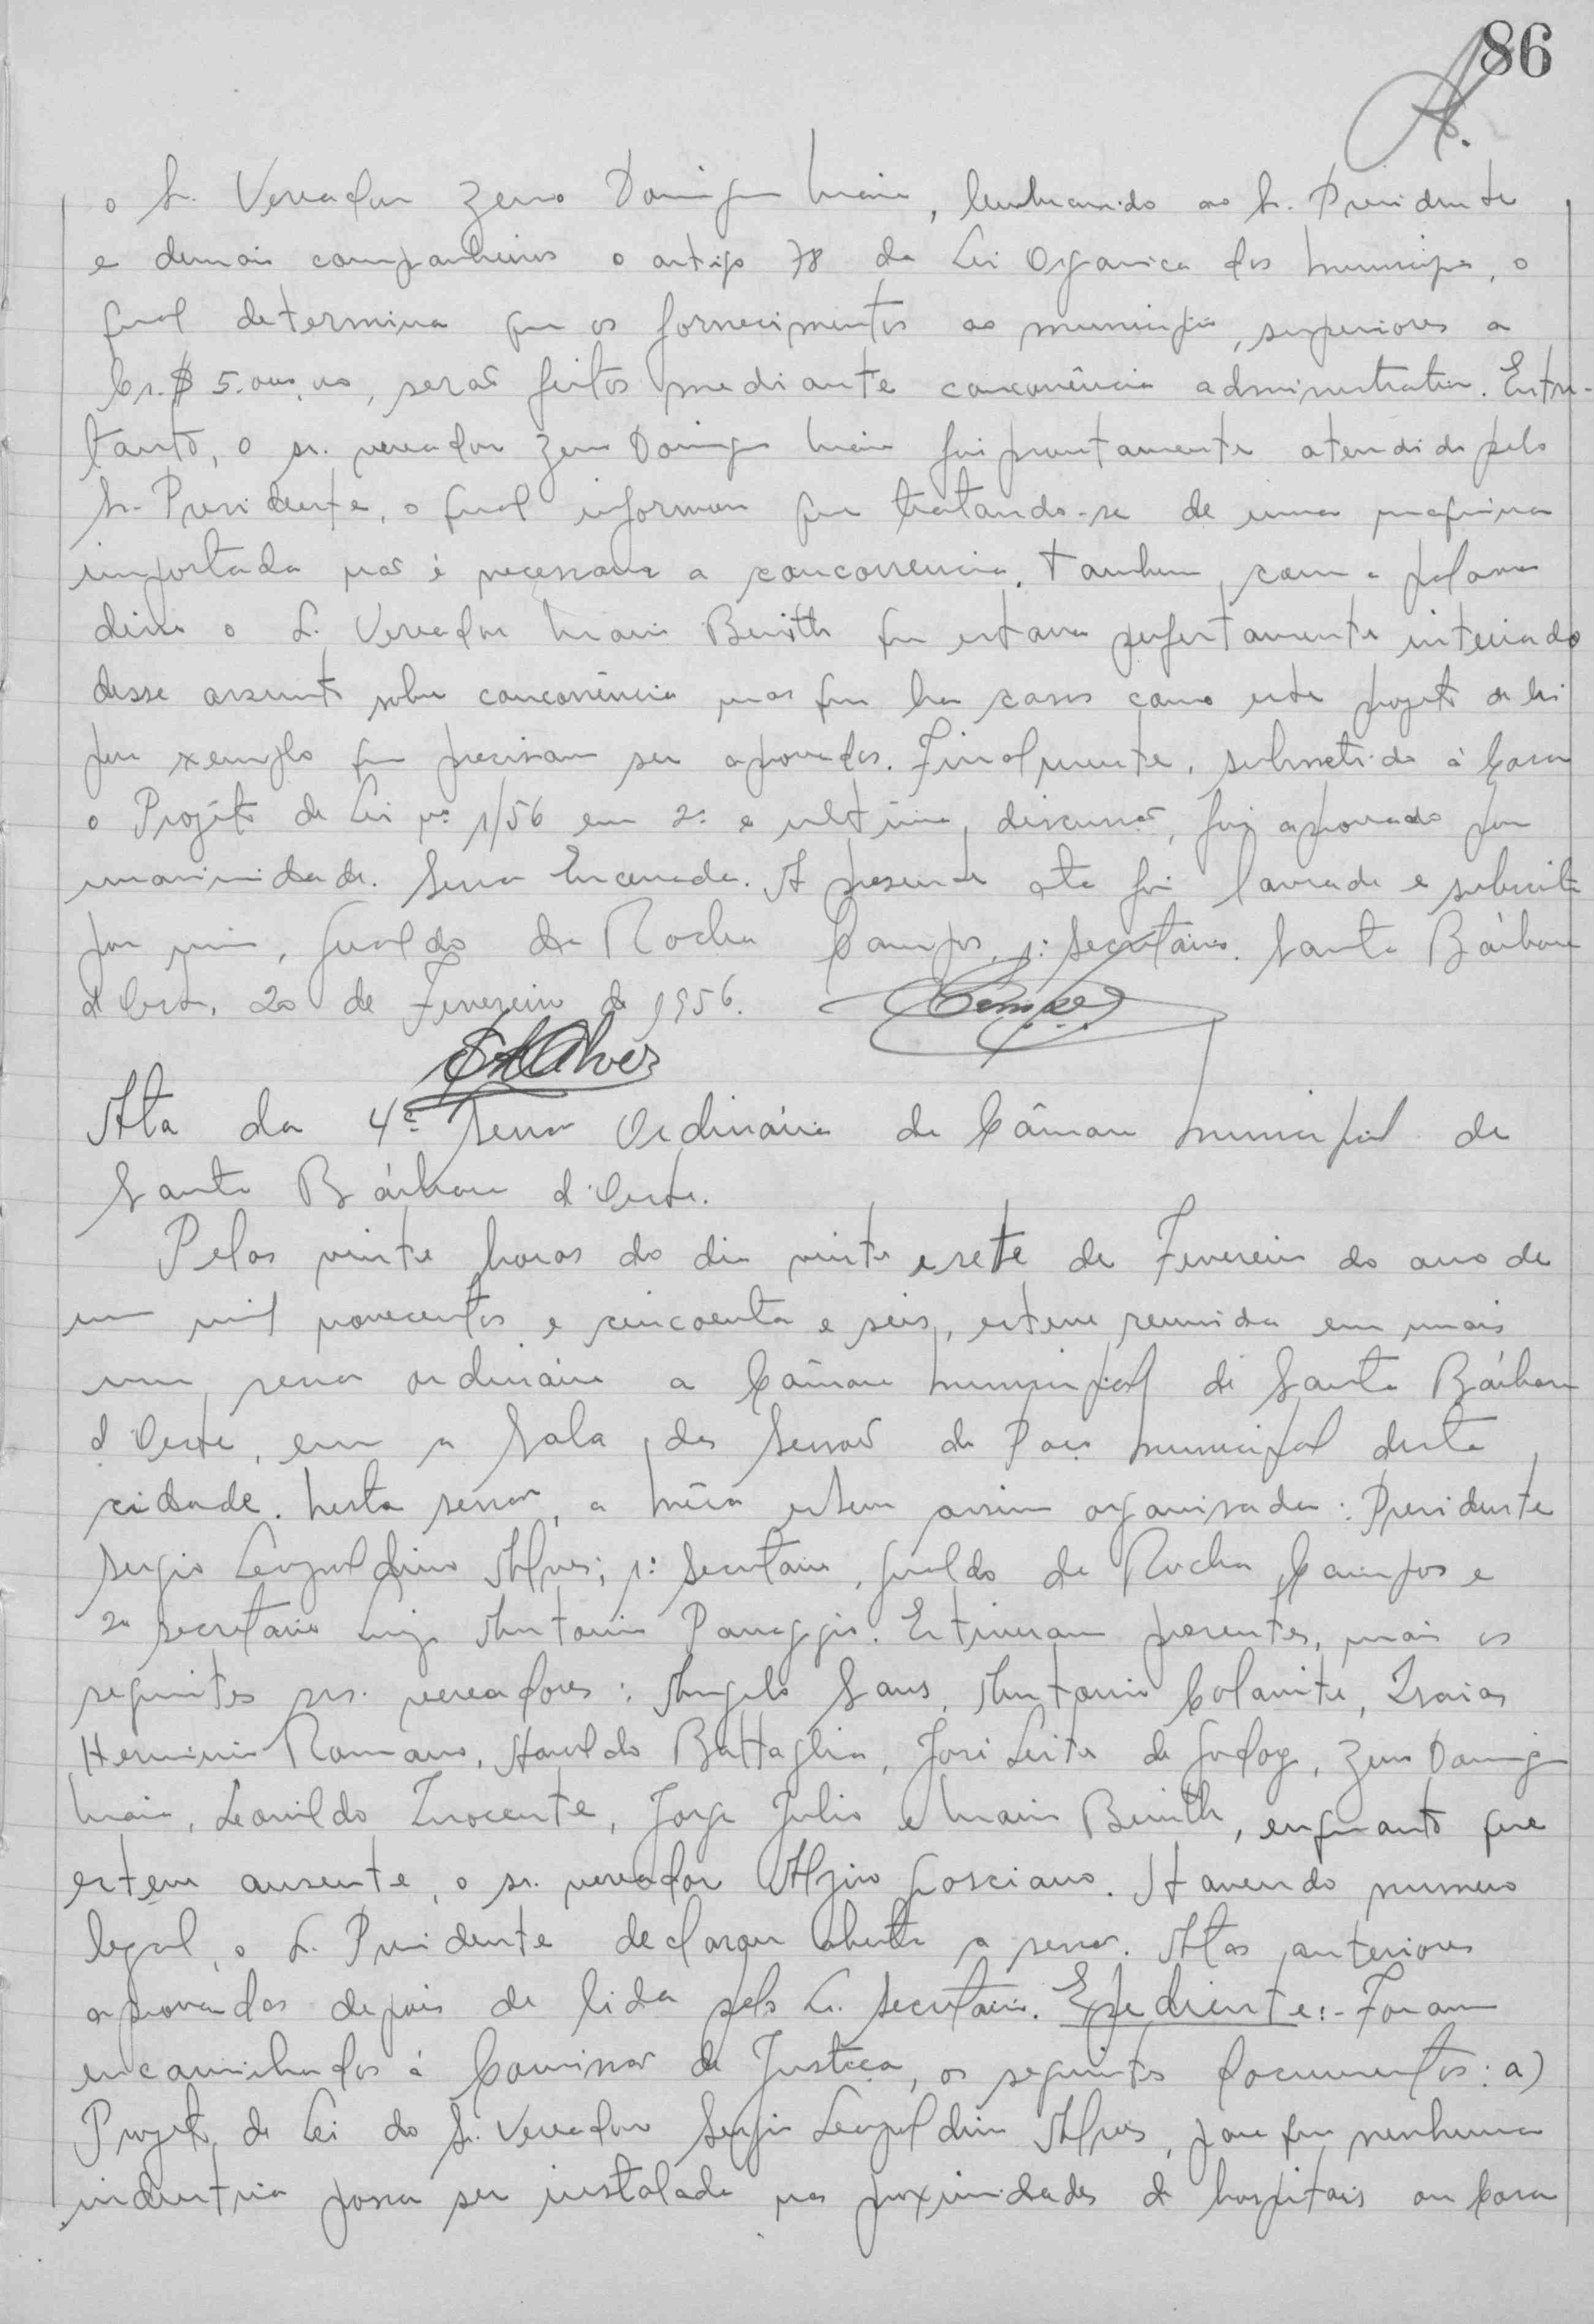 86
A.
o Sr. Vereador Zeno Domingos Maia, lembrando ao Sr. Presidente
e demais companheiros o artigo 78 da Lei Organica dos Municipios, o
qual determina que os fornecimentos ao municipio, superiores a
Cr.$ 5.000,00, serão feitos mediante concorrência administrativa. Entre-
tanto, o sr. vereador Zeno Domingos Maia foi prontamente atendido pelo
Sr. Presidente, o qual informou que tratando-se de uma maquina
importada não é necessaria a concorrencia. Tambem, com a palavra
disse o Sr. Vereador Mario Benith que estava perfeitamente inteirado
desse assunto sobre concorrência mas que ha casos como este projeto de lei
por exemplo que precisam ser aprovados. Finalmente, submetido à Casa
o Projéto de Lei nº 1/56 em 2ª e ultima discussão, foi aprovado por
unanimidade. Sessão Encerrada. A presente ata foi lavrada e subscrita
por mim, Gualdo da Rocha Campos, 1º Secretário. Santa Bárbara
d'Oeste, 20 de Fevereiro de 1956. Campos
SLAlves
Ata da 4ª Sessão Ordinária da Câmara Municipal de
Santa Bárbara d'Oeste.
Pelas vinte horas do dia vinte e sete de Fevereiro do ano de
um mil novecentos e cincoenta e seis, esteve reunida em mais
uma sessão ordinária a Câmara Municipal de Santa Bárbara
d'Oeste, em a Sala das Sessões do Paço Municipal desta
cidade. Nesta sessão, a mêsa esteve assim organisada: Presidente
Sergio Leopoldino Alves; 1º Secretario, Gualdo da Rocha Campos e
2º secretario Luiz Antonio Panaggio. Estiveram presentes, mais os
seguintes srs. vereadores: Angelo Sans, Antonio Colanite, Izaias
Herminio Romano, Haroldo Battaglia, José Leite de Godoy, Zeno Domingos
Maia, Leonildo Inocente, Jorge Julio e Mario Benith, enquanto que
esteve ausente, o sr. vereador Alziro Gosciano. Havendo numero
legal, o Sr. Presidente declarou aberta a sessão. Atas anteriores
aprovadas depois de lida pelo Sr. Secretario. Expediente:- Foram
encaminhados á Comissão de Justiça, os seguintes documentos: a)
Projeto de Lei do Sr. Vereador Sergio Leopoldino Alves, para que nenhuma
industria possa ser instalada nas proximidades de hospitais ou Casa